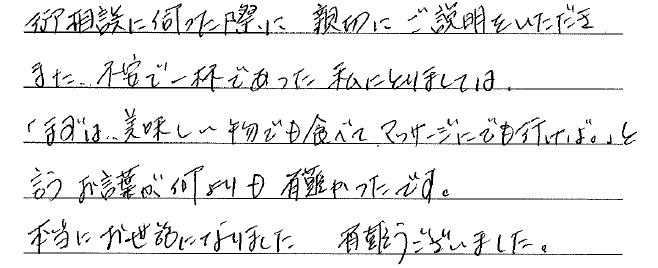 御相談に伺った際に 親切にご説明をいただき
また、不安で一杯であった私にとりましては、
「まずは、美味しい物でも食べてマッサージにでも行けば。」と
言うお言葉が何よりも有難かったです。
本当にお世話になりました 有難うございました。